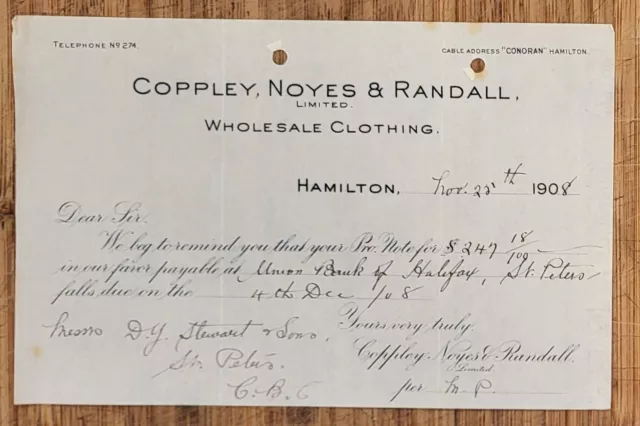 TELEPHONE No 274.
CABLE ADDRESS "CONORAN" HAMILTON.
COPPLEY, NOYES & RANDALL,
LIMITED.
WHOLESALE CLOTHING.
HAMILTON, Nov. 25th 1908
Dear Sir.
We beg to remind you that your Pro. Note for $ 247 18/100
in our favor payable at Union Bank of Halifax, St. Peters
falls due on the 4th Dec /08
Yours very truly.
Messrs D.Y. Stewart & Sons,
Coppley, Noyes & Randall.
Limited.
St. Peters.
per M. P.
C. B.